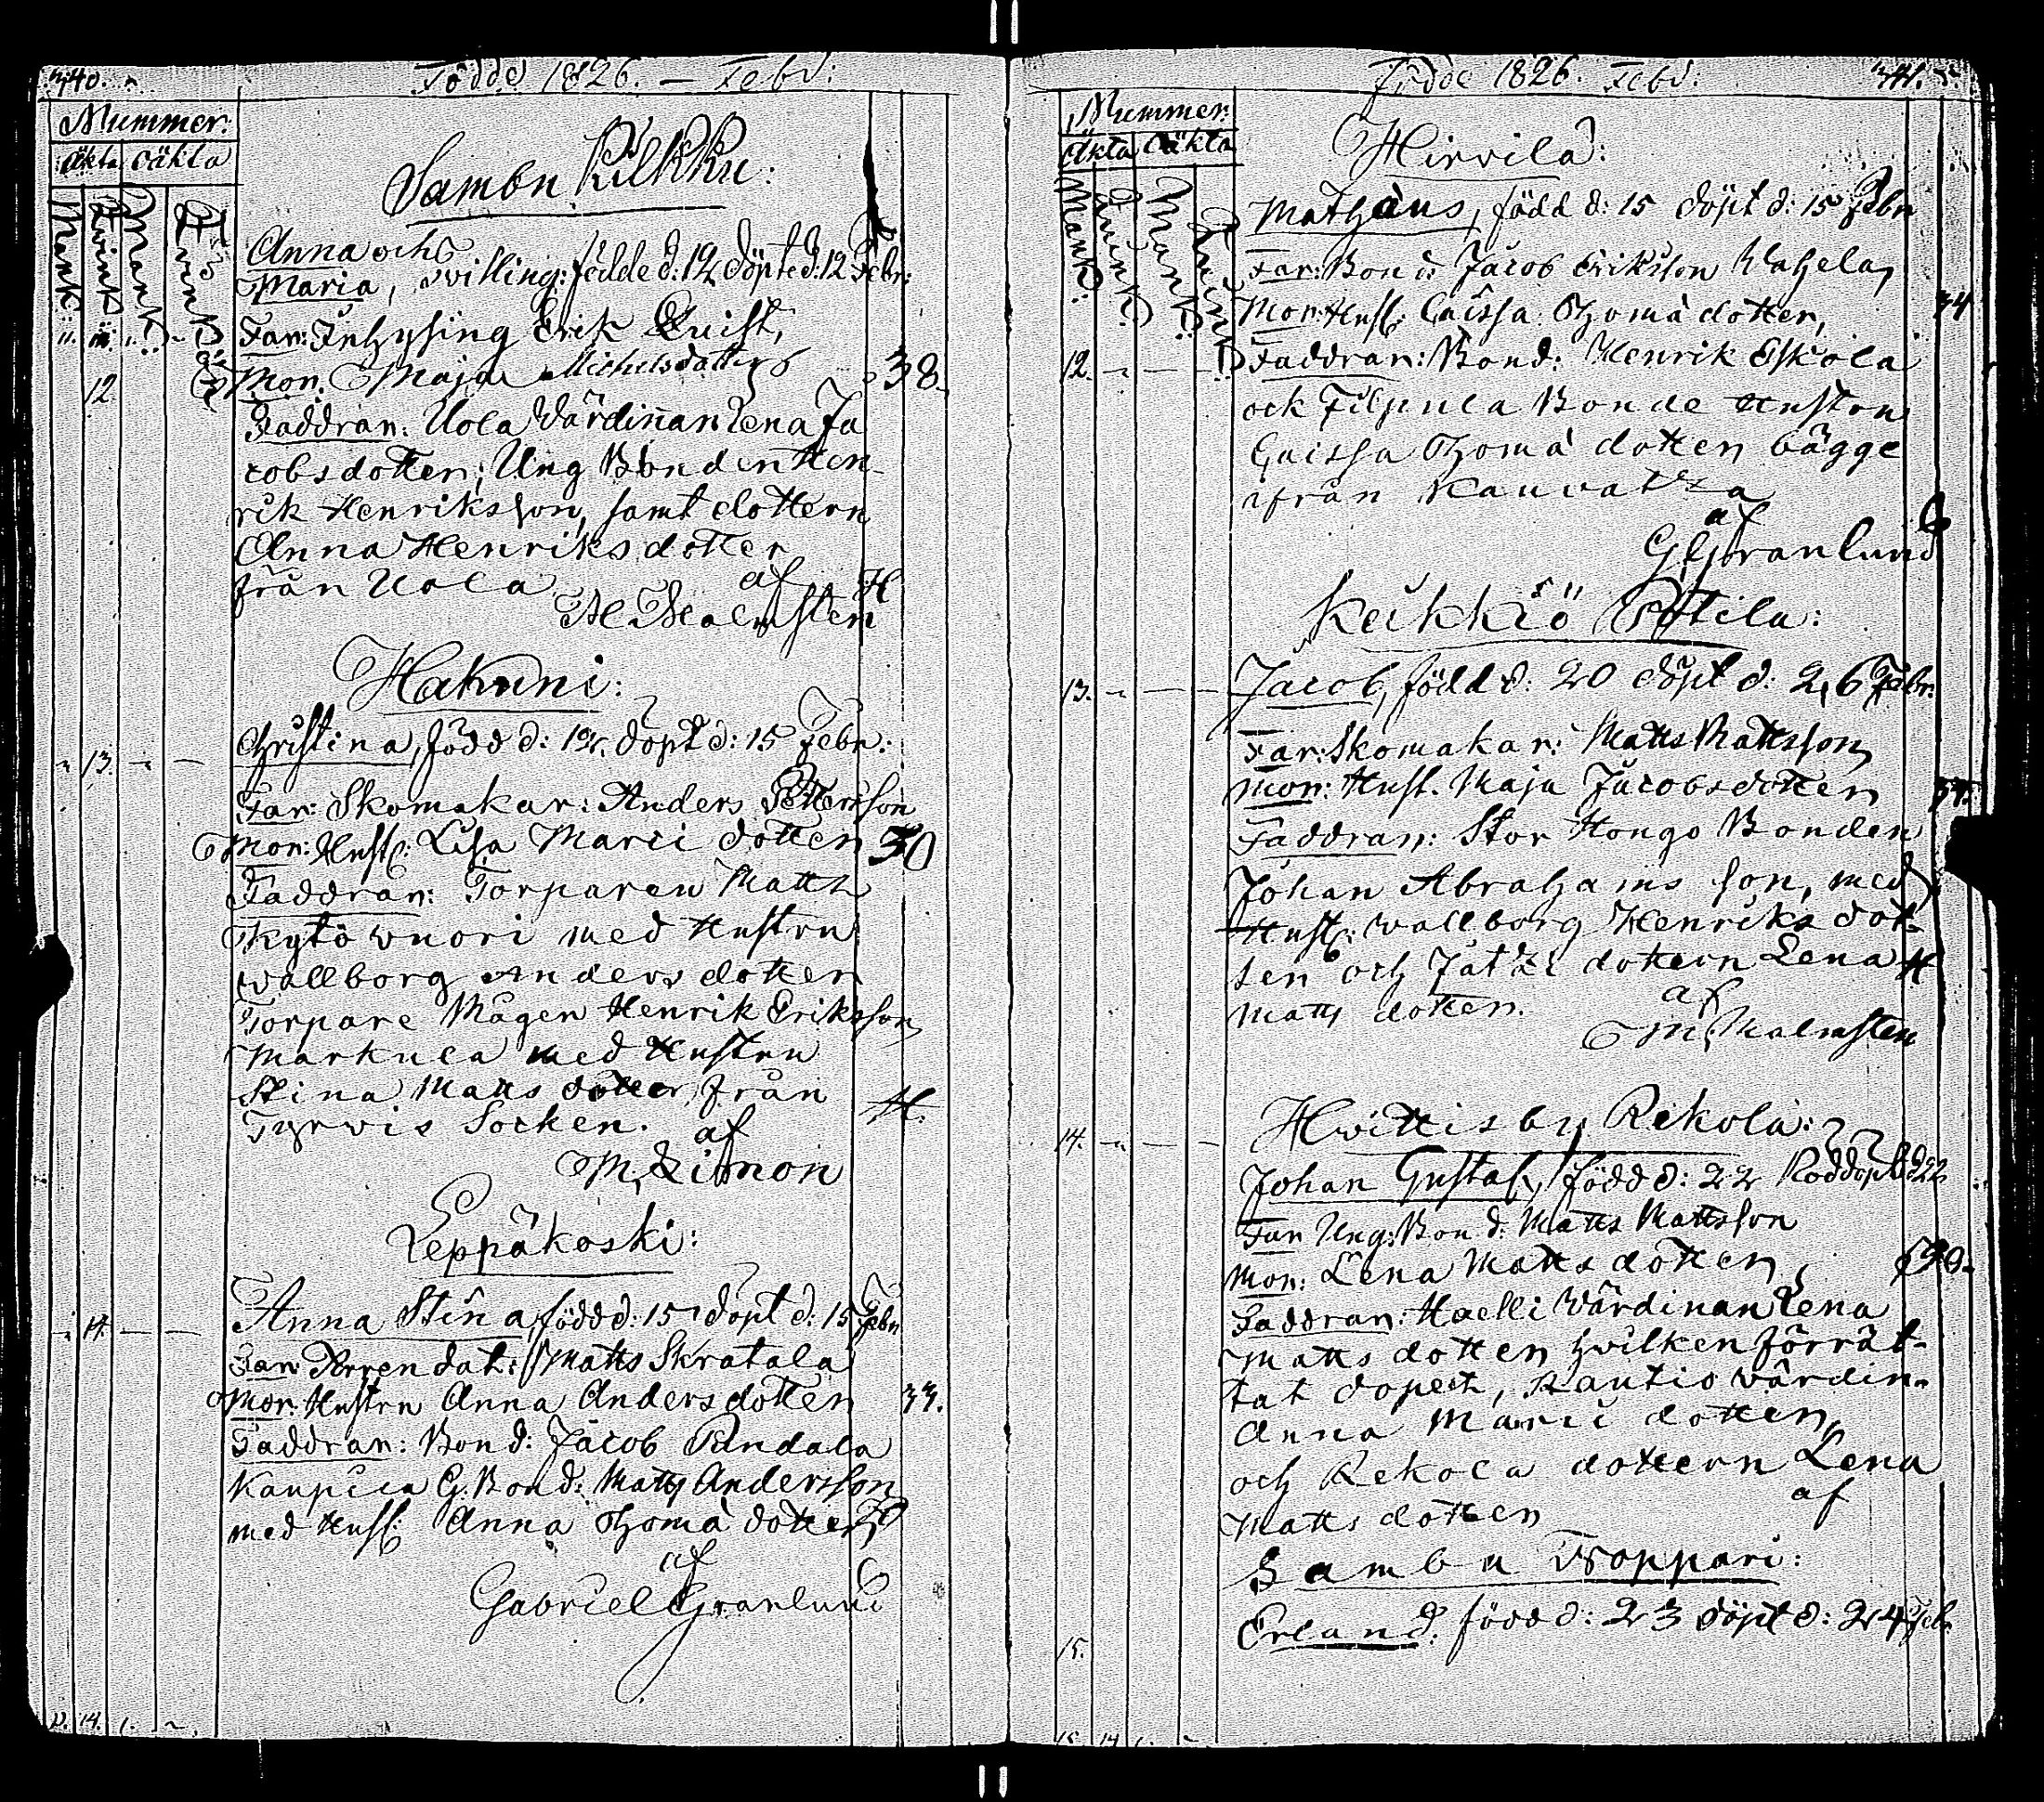 340.
Födde 1826. — Febr:
Nummer:
äkta oäkta
Mank: Qvink: Mank: Qvink:
11. 11. 1. ~
Sambu Kilkku:
Anna och
Maria, tvilling: födde d: 12 döpte d: 12 Febr:
Far: Inhysing Erik Quist,
12.
Mor: Maja Michelsdotter
38.
Faddrar: Uola Värdinnan Lena Ja
cobsdotter, Ung Bonden Hen-
rik Henriksson, samt dottern
Anna Henriksdotter
från Uola. af H
M. Malmsten
Hakuni:
13.
Christina, född d: 12. döpt d: 15 Febr:
Far: Skomakar: Anders Pettersson
Mor: Hust: Lisa Marci dotter
30
Faddrar: Torparen Matts
Kytö vuori med Hustru
Wallborg Anders dotter
Torpare Mågen Henrik Eriksson
Markula med Hustru
Stina Matts dotter, från
Tyrvis Socken. H.
af
M. Limon
Leppäkoski:
14.
Anna Stina, född d: 15 döpt d: 15 Febr
Far: Arrendat: Matts Skratala
Mor: Hustru Anna Andersdotter
33.
Faddrar: Bond: Jacob Pundala
Kaupila G. Bond: Matts Andersson
med Hust: Anna Thomä dotter
af
Gabriel Granlund
12. 14. 1. ~
Födde 1826. Febr:
341.
Nummer:
äkta oäkta
Mank: Qvink: Mank: Qvink:
Hirvilä:
Mathäus, född d: 15 döpt d: 15 Febr
Far: Bond: Jacob Eriksson Wahela,
Mor: Hust: Caissa Thomä dotter,
34
12.
Faddrar: Bond: Henrik Eskola
och Filpula Bonde Hustrun
Caissa Thomä dotter bägge
ifrån Kauvatza
af
G Granlund
Keikkiö Pottila:
13.
Jacob, född d: 20 döpt d: 26 Febr:
Far: Skomakar: Matts Mattsson
Mor: Hust. Maja Jacobsdotter
Faddrar: Stor Hongo Bonden
Johan Abrahams son, med
Hust: Wallborg Henriks dot-
ter och Jatzi dottern Lena H
Matts dotter.
af
M. Malmsten
Hwittisby Rekola:
14.
Johan Gustaf, född d: 22 Nöddöpt d 22
Far Ung: Bond: Matts Mattsson
Mor: Lena Matts dotter,
Faddrar: Haelli Värdinan Lena
Matts dotter hvilken förrät-
tat dopet, Rautio värdin.
Anna Marci dotter,
och Rekola dottern Lena
Matts dotter af
Sambu Noppari:
15.
Erland: född d: 23 döpt d: 24 Febr.
15. 14. 1. ~